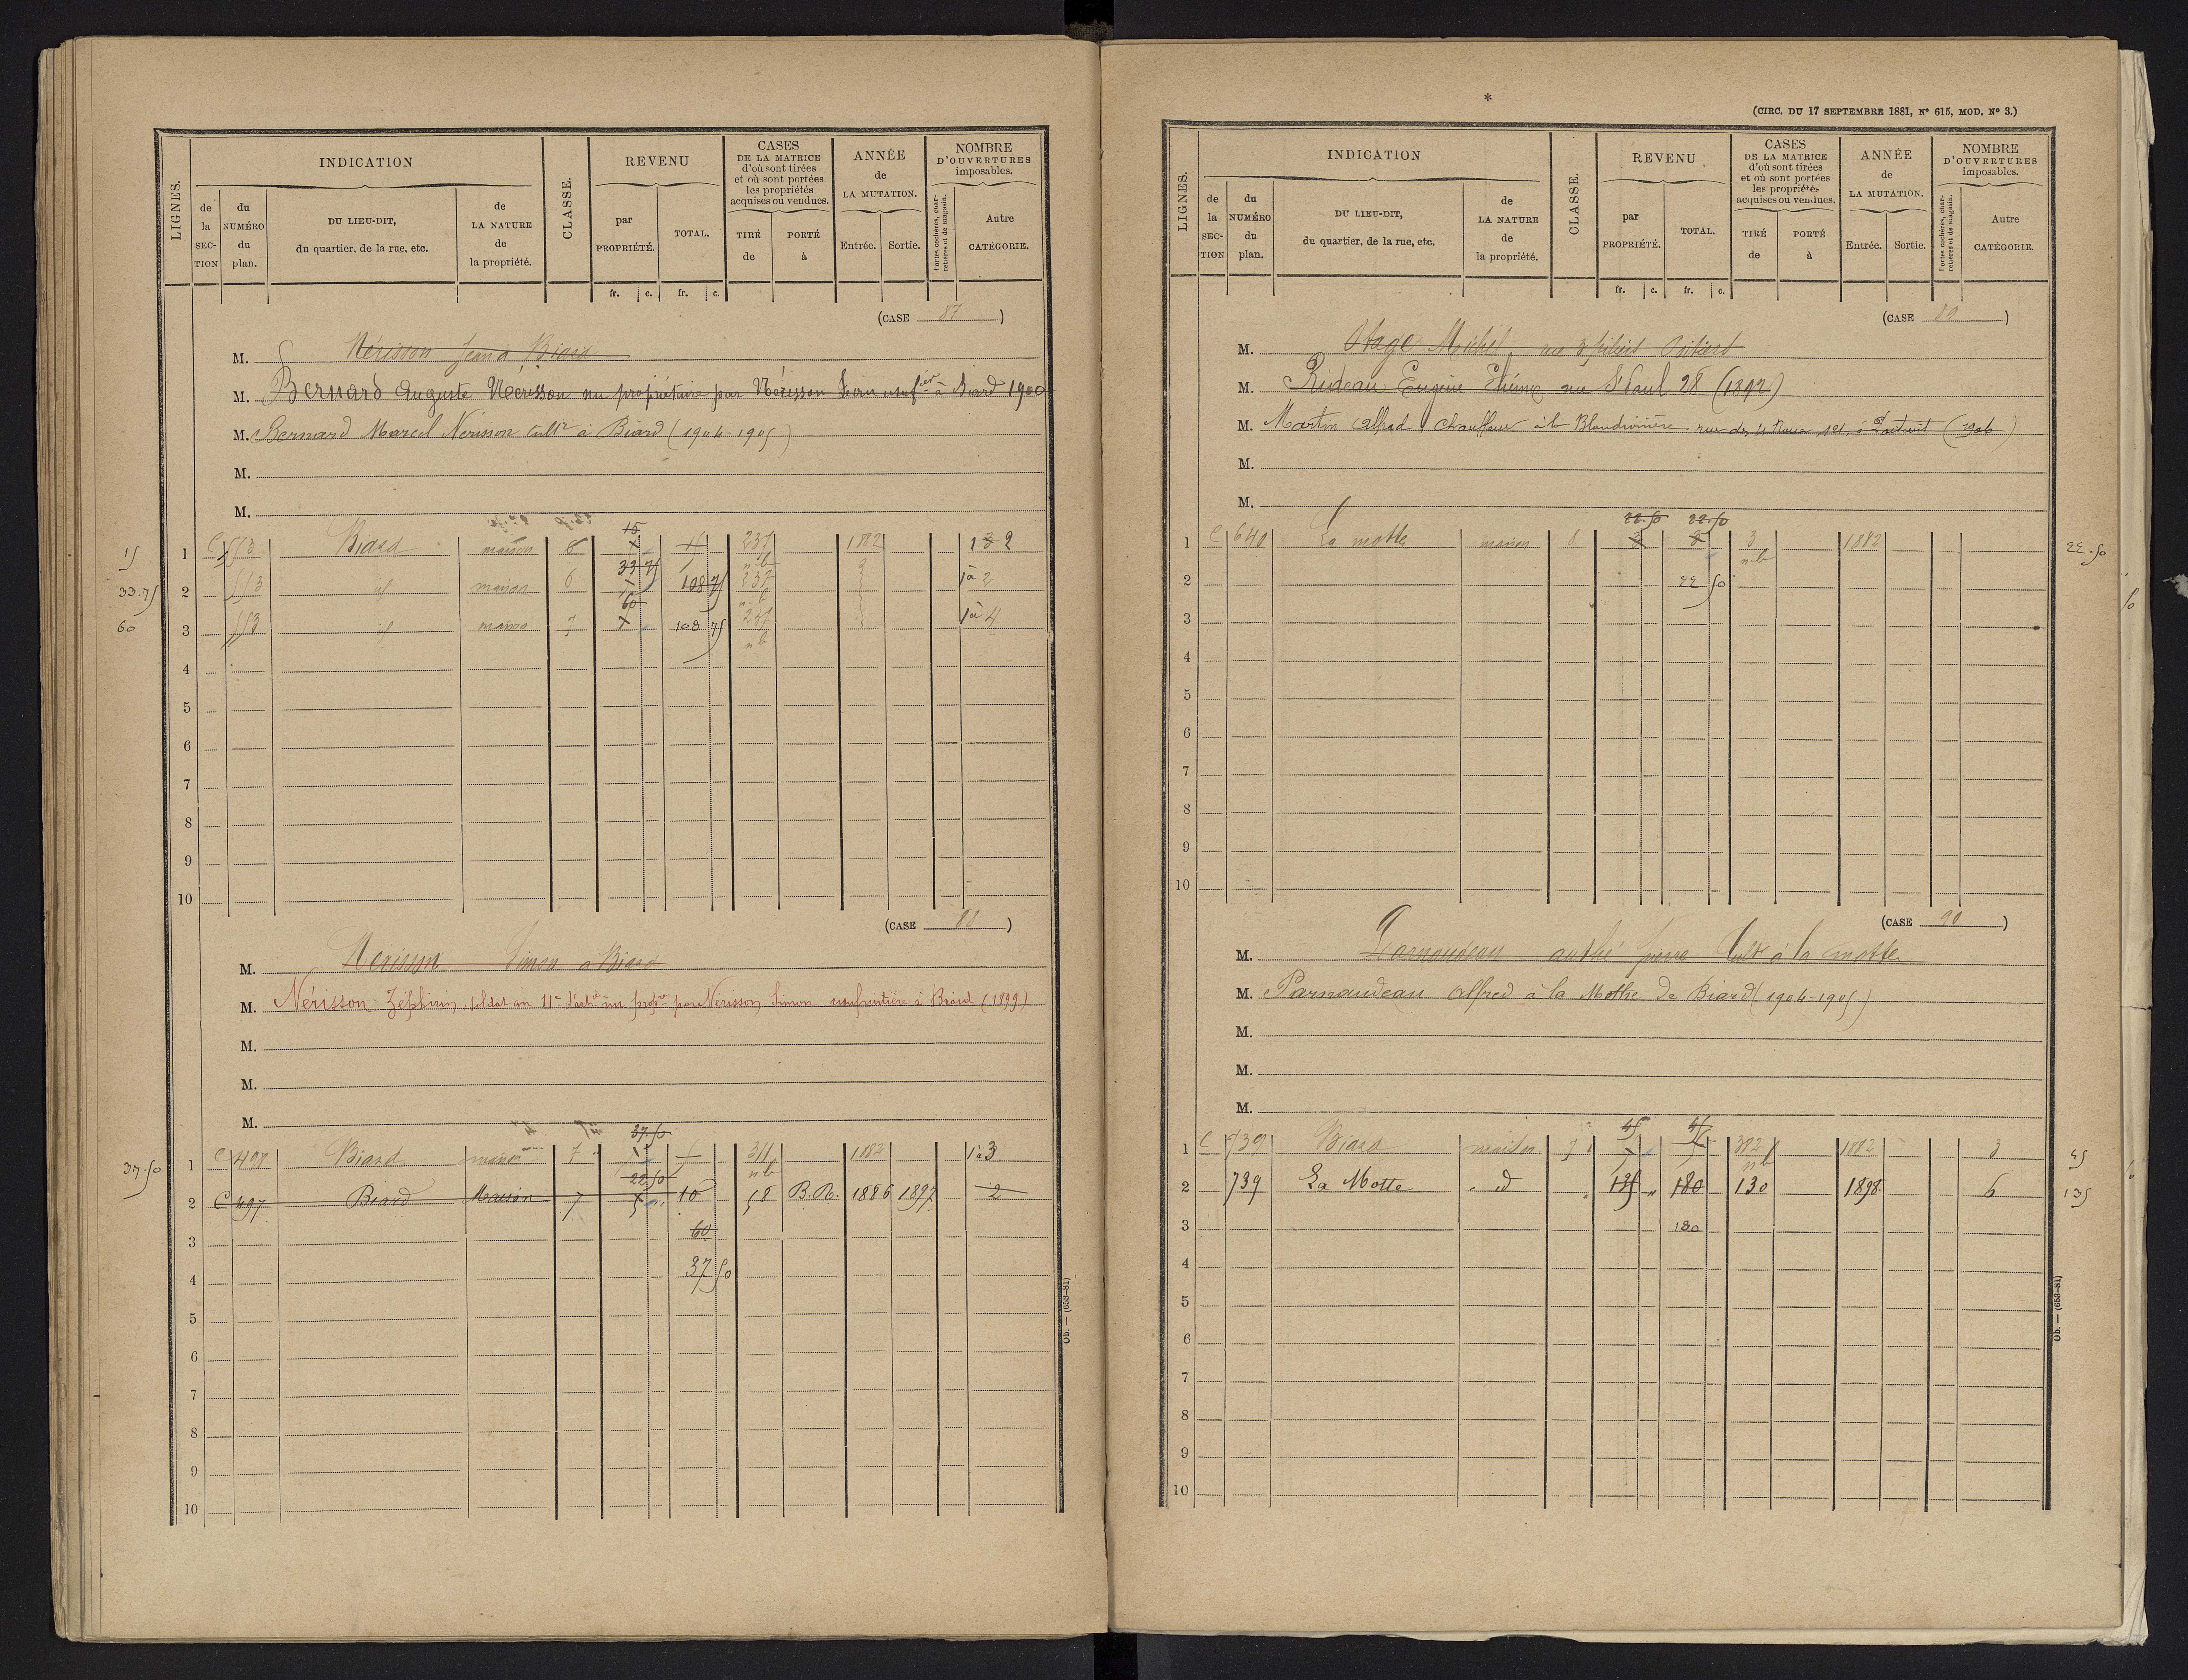 LIGNES.
INDICATION
de la SECTION
du NUMÉRO du plan.
DU LIEU-DIT, du quartier, de la rue, etc.
de LA NATURE de la propriété.
CLASSE.
REVENU
par PROPRIÉTÉ.
TOTAL.
fr. c. fr. c.
CASES DE LA MATRICE d'où sont tirées et où sont portées les propriétés acquises ou vendues.
TIRÉ de
PORTÉ à
ANNÉE de LA MUTATION.
Entrée. Sortie.
NOMBRE D'OUVERTURES imposables.
Portes cochères, charretières et de magasin.
Autre CATÉGORIE.
(CASE 87)
M. Nérisson Jean à Biard
M. Bernard Auguste Nérisson nu propriétaire par Nérisson Jean usuf.ier à Biard 1900
M. Bernard Marcel Nérisson cultr à Biard (1904-1905)
M.
M.
15 
15 1 C 553 Biard maison 8 237 nb 1882 1 3 2
33.75
33.75 2 553 id maison 6 108 75 237 nb 1 à 2
60
60 3 553 id maison 7 108 75 237 nb 1 à 4
4
5
6
7
8
9
10
(CASE 88)
M. Nérisson Simon à Biard
M. Nérisson Zéphirin, soldat au 11e d'artie nu propre par Nérisson Simon usufruitière à Biard (1899)
M.
M.
M.
37.50
37.50 1 C 497 Biard maison 7 311 nb 1882 1 à 3
22.50
2 C 497 Biard Maison 7 5 10 58 B.R. 1886 1897 2
3 60
4 37 50
5
6
7
8
9
10
Ob. — (653-81)
*
(CIRC. DU 17 SEPTEMBRE 1881, N° 615, MOD. N° 3.)
LIGNES.
INDICATION
de la SECTION
du NUMÉRO du plan.
DU LIEU-DIT, du quartier, de la rue, etc.
de LA NATURE de la propriété.
CLASSE.
REVENU
par PROPRIÉTÉ.
TOTAL.
fr. c. fr. c.
CASES DE LA MATRICE d'où sont tirées et où sont portées les propriétés acquises ou vendues.
TIRÉ de
PORTÉ à
ANNÉE de LA MUTATION.
Entrée. Sortie.
NOMBRE D'OUVERTURES imposables.
Portes cochères, charretières et de magasin.
Autre CATÉGORIE.
(CASE 89)
M. Michel rue 3 piliers Poitiers
M. Rideau Eugène rue St Paul 28 (1892)
M. Martin Alfred chauffeur à la Blaudinière rue des 4 Roues, 121, à Poitiers (1906)
M.
M.
22.50 22.50
1 C 640 La motte maison 8 3 3 3 nb 1882 22.50
2 22 50
3
4
5
6
7
8
9
10
(CASE 90)
M. Parnaudeau Pierre Cultr à la motte
M. Parnaudeau Alfred à la Mothe de Biard (1904-1905)
M.
M.
M.
45 45
1 C 739 Biard maison 7 382 nb 1882 3 45
2 739 La Motte id 135 180 130 1898 6 135
3 180
4
5
6
7
8
9
10
Ob. — (653-81)